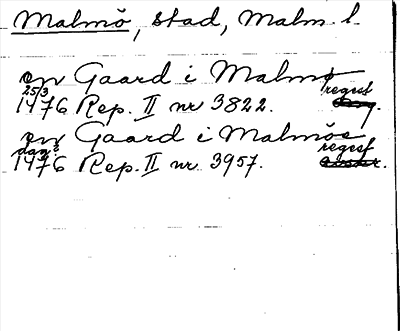 Malmö, stad, Malm. l.
en Gaard i Malmö
25/3 regest
1476 Rep. II nr 3822.
en Gaard i Malmöe
regest
1476 Rep. II nr. 3957.